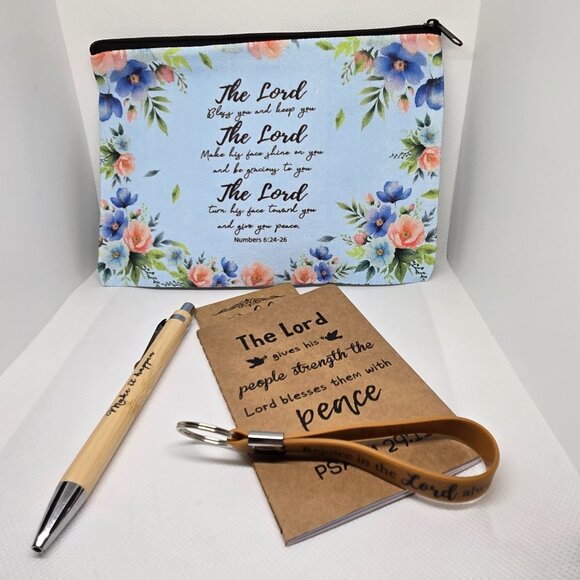 The Lord
Bless you and keep you
The Lord
Make his face shine on you
and be gracious to you
The Lord
turn his face toward you
and give you peace.
Numbers 6:24-26
Make it happen
The Lord
gives his
people strength the
Lord blesses them with
peace
PSALM 29:11
Rejoice in the Lord